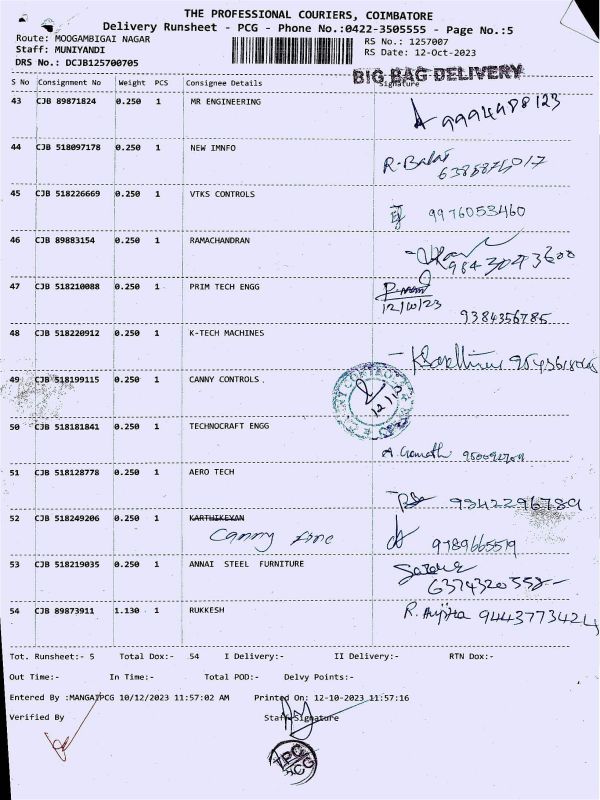 THE PROFESSIONAL COURIERS, COIMBATORE
Delivery Runsheet - PCG - Phone No.:0422-3505555 - Page No.:5
Route: MOOGAMBIGAI NAGAR RS No.: 1257007
Staff: MUNIYANDI RS Date: 12-Oct-2023
DRS No.: DCJB125700705
BIG BAG DELIVERY
S No Consignment No Weight PCS Consignee Details Signature
43 CJB 89871824 0.250 1 MR ENGINEERING 9994988123
44 CJB 518097178 0.250 1 NEW IMNFO R. Balaji
45 CJB 518226669 0.250 1 VTKS CONTROLS 9976053460
46 CJB 89883154 0.250 1 RAMACHANDRAN
47 CJB 518210088 0.250 1 PRIM TECH ENGG
12/10/23 9384356785
48 CJB 518220912 0.250 1 K-TECH MACHINES
49 CJB 518199115 0.250 1 CANNY CONTROLS.
50 CJB 518181841 0.250 1 TECHNOCRAFT ENGG
51 CJB 518128778 0.250 1 AERO TECH 9342296789
52 CJB 518249206 0.250 1 KARTHIKEYAN
Canny 9789665519
53 CJB 518219035 0.250 1 ANNAI STEEL FURNITURE
54 CJB 89873911 1.130 1 RUKKESH 9443773424
Tot. Runsheet:- 5 Total Dox:- 54 I Delivery:- II Delivery:- RTN Dox:-
Out Time:- In Time:- Total POD:- Delvy Points:-
Entered By :MANGAIPCG 10/12/2023 11:57:02 AM Printed On: 12-10-2023 11:57:16
Verified By Staff Signature